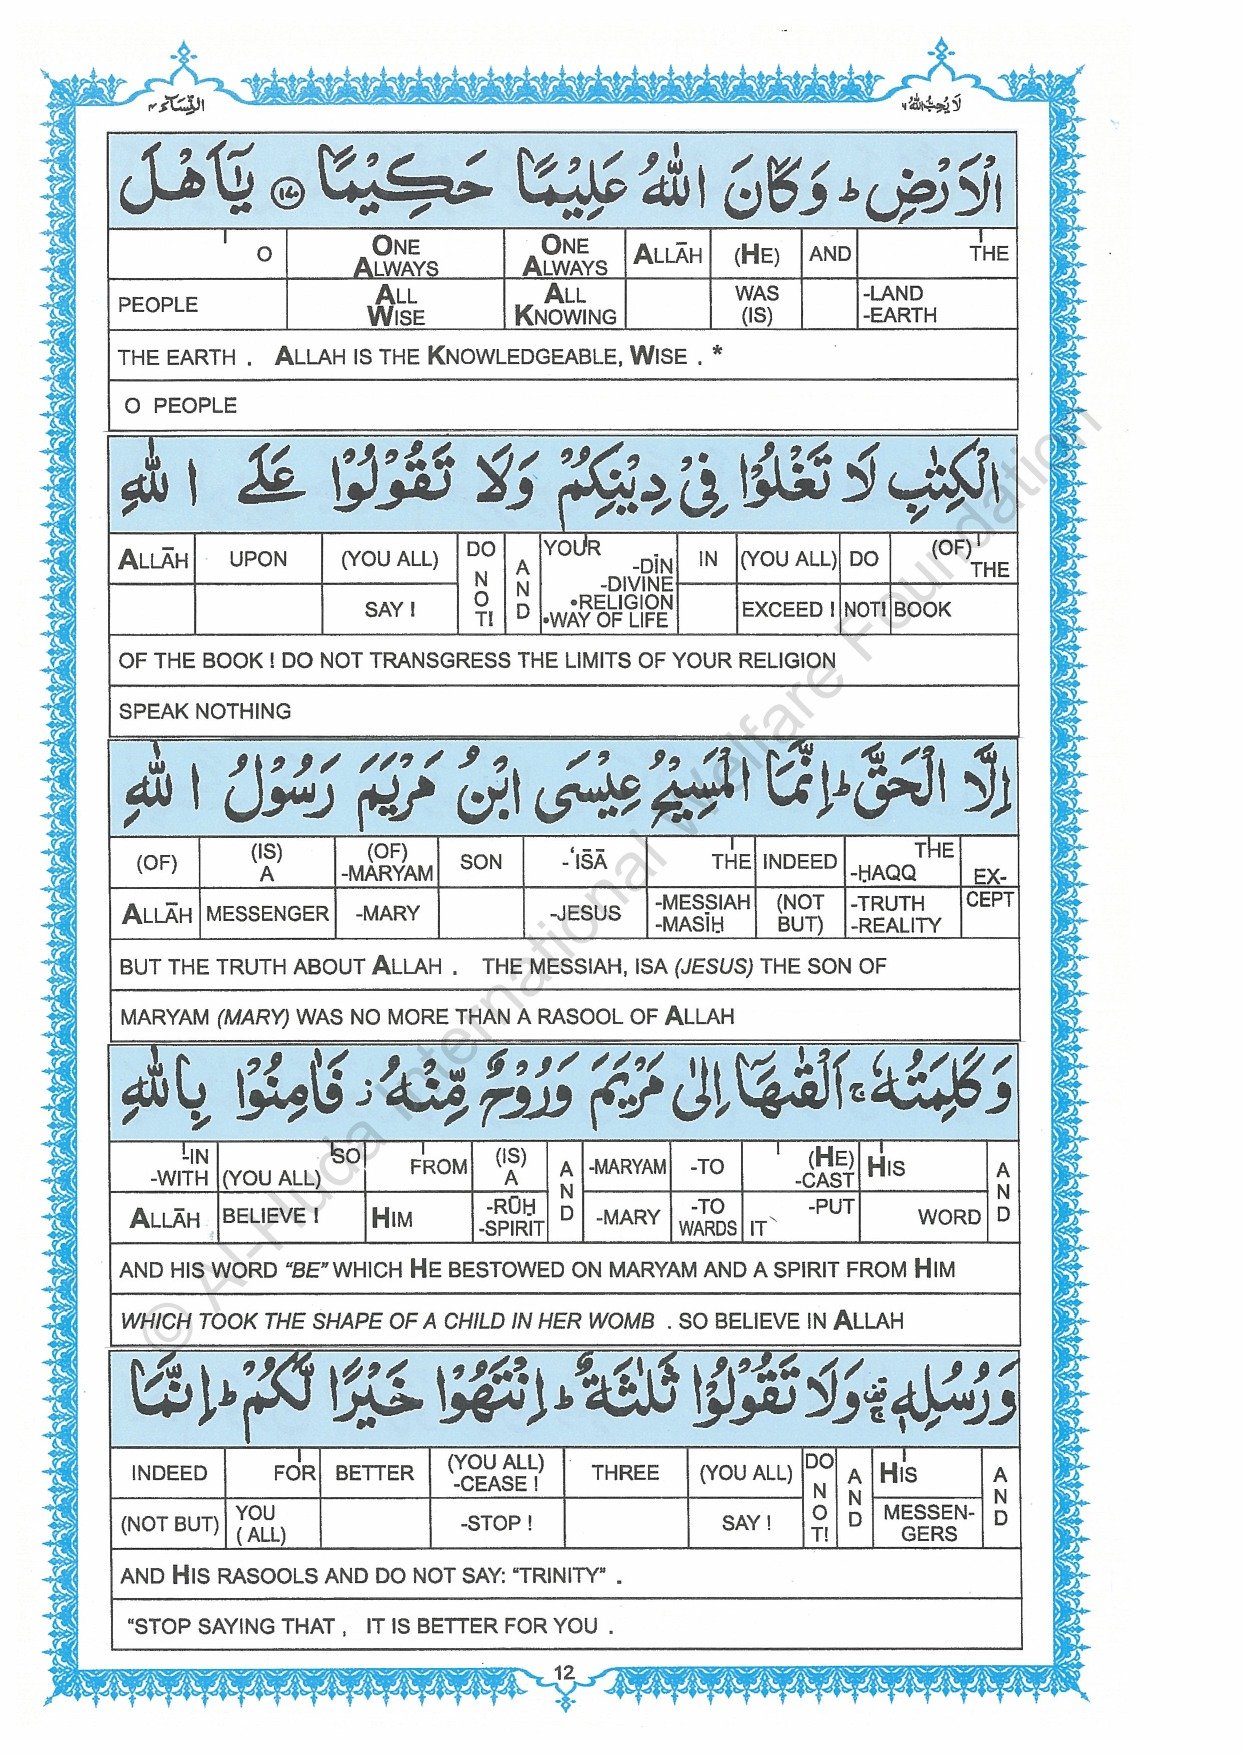 النِّسَآء ٤
لَا يُحِبُّ اللّٰهُ ٦
الْاَرْضِ ؕ وَكَانَ اللّٰهُ عَلِيْمًا حَكِيْمًا ﴿١٧٠﴾ يٰۤاَهْلَ
O | ONE ALWAYS | ONE ALWAYS | ALLĀH | (HE) | AND | THE
PEOPLE | ALL WISE | ALL KNOWING | WAS (IS) | -LAND -EARTH
THE EARTH . ALLAH IS THE KNOWLEDGEABLE, WISE . *
O PEOPLE
الْكِتٰبِ لَا تَغْلُوْا فِيْ دِيْنِكُمْ وَلَا تَقُوْلُوْا عَلَى اللّٰهِ
ALLĀH | UPON | (YOU ALL) | DO NOT! | AND | YOUR -DĪN -DIVINE •RELIGION •WAY OF LIFE | IN | (YOU ALL) | DO | (OF) THE
SAY ! | EXCEED ! | NOT! | BOOK
OF THE BOOK ! DO NOT TRANSGRESS THE LIMITS OF YOUR RELIGION
SPEAK NOTHING
اِلَّا الْحَقَّ ؕ اِنَّمَا الْمَسِيْحُ عِيْسَى ابْنُ مَرْيَمَ رَسُوْلُ اللّٰهِ
(OF) | (IS) A | (OF) -MARYAM | SON | -‘ĪSĀ | THE | INDEED | THE -ḤAQQ | EX-CEPT
ALLĀH | MESSENGER | -MARY | -JESUS | -MESSIAH -MASĪḤ | (NOT BUT) | -TRUTH -REALITY
BUT THE TRUTH ABOUT ALLAH . THE MESSIAH, ISA (JESUS) THE SON OF
MARYAM (MARY) WAS NO MORE THAN A RASOOL OF ALLAH
وَكَلِمَتُهٗ ۚ اَلْقٰىهَاۤ اِلٰى مَرْيَمَ وَرُوْحٌ مِّنْهُ ؗ فَاٰمِنُوْا بِاللّٰهِ
-IN -WITH | SO (YOU ALL) | FROM | (IS) A | AND | -MARYAM | -TO | (HE) -CAST | HIS | AND
ALLĀH | BELIEVE ! | HIM | -RŪḤ -SPIRIT | -MARY | -TO WARDS | IT -PUT | WORD
AND HIS WORD “BE” WHICH HE BESTOWED ON MARYAM AND A SPIRIT FROM HIM
WHICH TOOK THE SHAPE OF A CHILD IN HER WOMB . SO BELIEVE IN ALLAH
وَرُسُلِهٖ ۚ وَلَا تَقُوْلُوْا ثَلٰثَةٌ ؕ اِنْتَهُوْا خَيْرًا لَّكُمْ ؕ اِنَّمَا
INDEED | FOR | BETTER | (YOU ALL) -CEASE ! | THREE | (YOU ALL) | DO NOT! | AND | HIS | AND
(NOT BUT) | YOU ( ALL) | -STOP ! | SAY ! | MESSEN-GERS
AND HIS RASOOLS AND DO NOT SAY: “TRINITY” .
“STOP SAYING THAT , IT IS BETTER FOR YOU .
12
© Al-Huda International Welfare Foundation